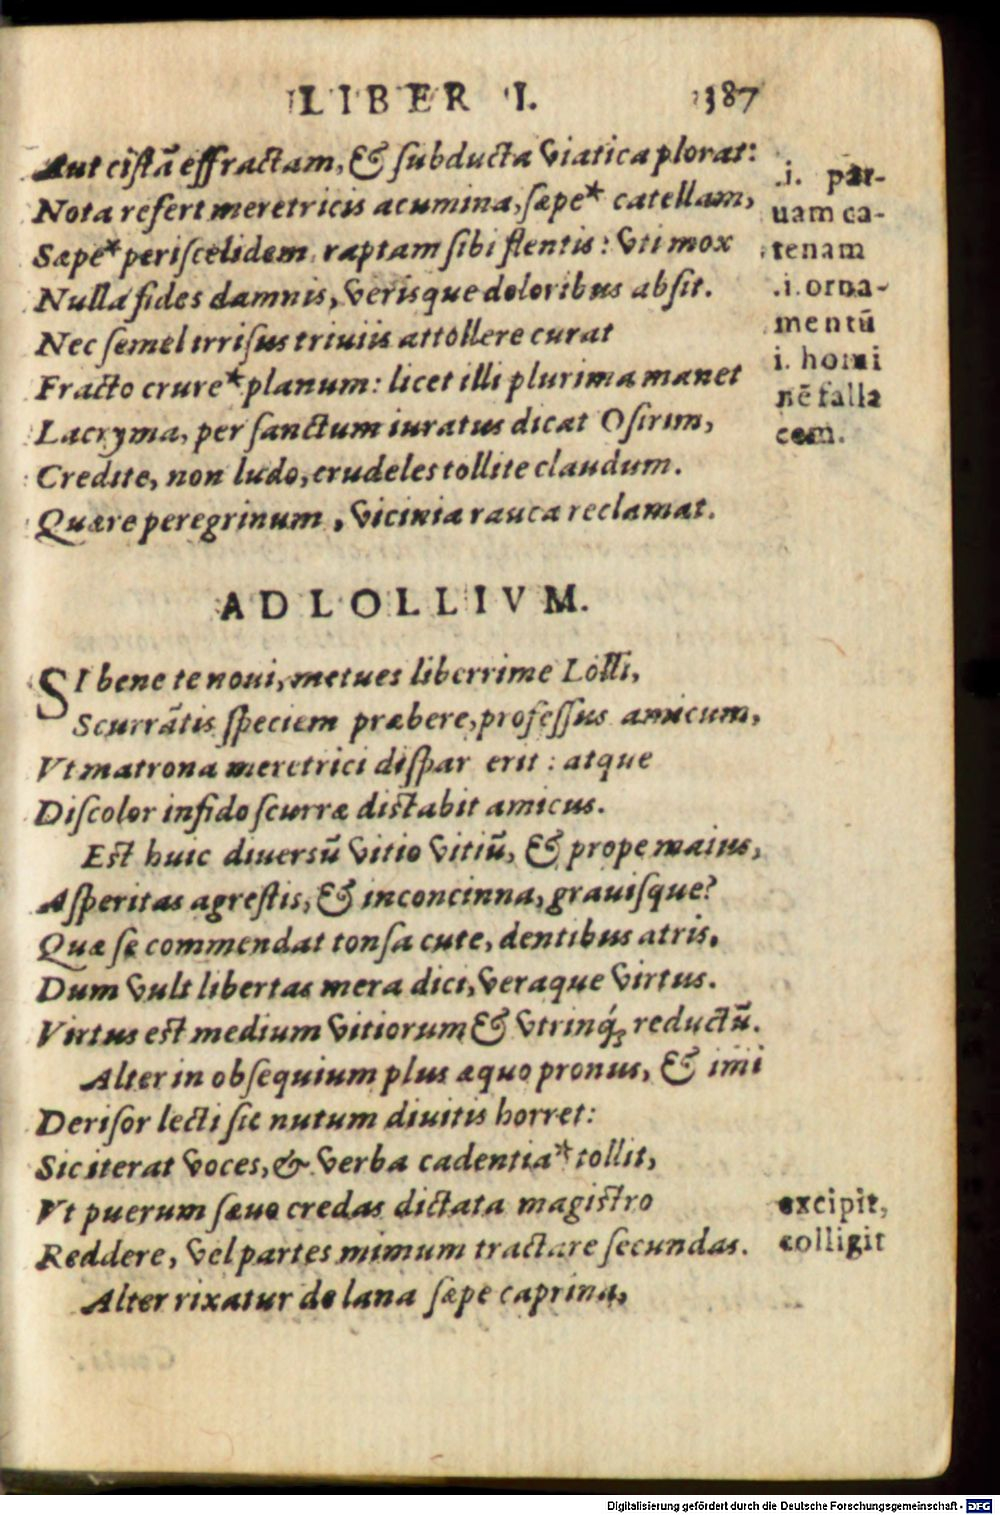 LIBER I. 187
Aut cistā effractam, & subducta viatica plorat:
Nota refert meretricis acumina, sæpe* catellam,
Sæpe* periscelidem raptam sibi flentis: vti mox
Nulla fides damnis, verisque doloribus absit.
Nec semel irrisus triuiis attollere curat
Fracto crure* planum: licet illi plurima manet
Lacryma, per sanctum iuratus dicat Osirim,
Credite, non ludo, crudeles tollite claudum.
Quære peregrinum, vicinia rauca reclamat.
.i. par-
uam ca-
tenam
.i. orna-
mentū
i. homi
nē falla
cem.
AD LOLLIVM.
SI bene te noui, metues liberrime Lolli,
Scurrātis speciem præbere, professus amicum,
Vt matrona meretrici dispar erit: atque
Discolor infido scurræ distabit amicus.
Est huic diuersū vitio vitiū, & prope maius,
Asperitas agrestis, & inconcinna, grauisque?
Quæ se commendat tonsa cute, dentibus atris,
Dum vult libertas mera dici, veraque virtus.
Virtus est medium vitiorum & vtrinq́; reductū.
Alter in obsequium plus æquo pronus, & imi
Derisor lecti sic nutum diuitis horret:
Sic iterat voces, & verba cadentia* tollit,
Vt puerum sæuo credas dictata magistro
Reddere, vel partes mimum tractare secundas.
Alter rixatur de lana sæpe caprina,
excipit,
colligit
Digitalisierung gefördert durch die Deutsche Forschungsgemeinschaft - DFG